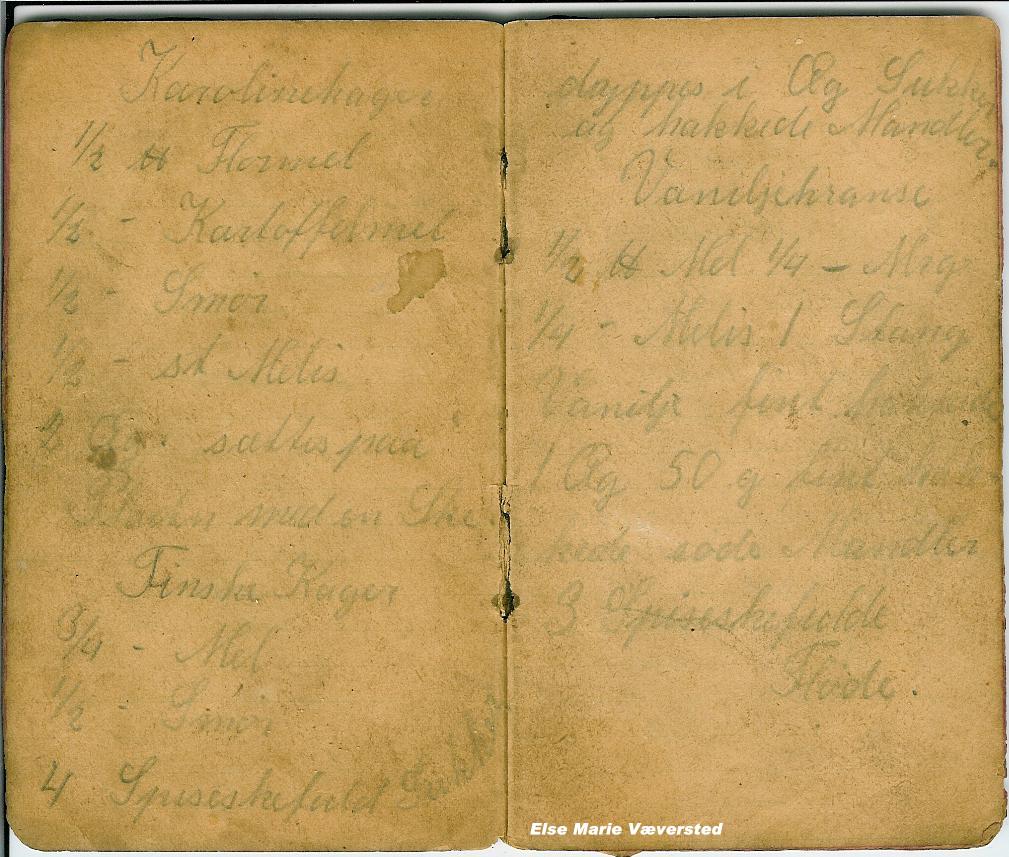 Karolinekager
1/2 ℔ Flormel
1/2 - Kartoffelmel
1/2 - Smør
1/2 - st Melis
2 Æg sættes paa
Pladen med en Ske
Finske Kager
3/4 - Mel
1/2 - Smør
4 Spiseskefuld Sukker
dyppes i Æg Sukker
og hakkede Mandler.
Vaniljekranse
1/2 ℔ Mel 1/4 - Mrg
1/4 - Melis 1 Stang
Vanilje fint hakkede
1 Æg 50 g fint hak-
kede søde Mandler
3 Spiseskefulde
Fløde.
Else Marie Væversted